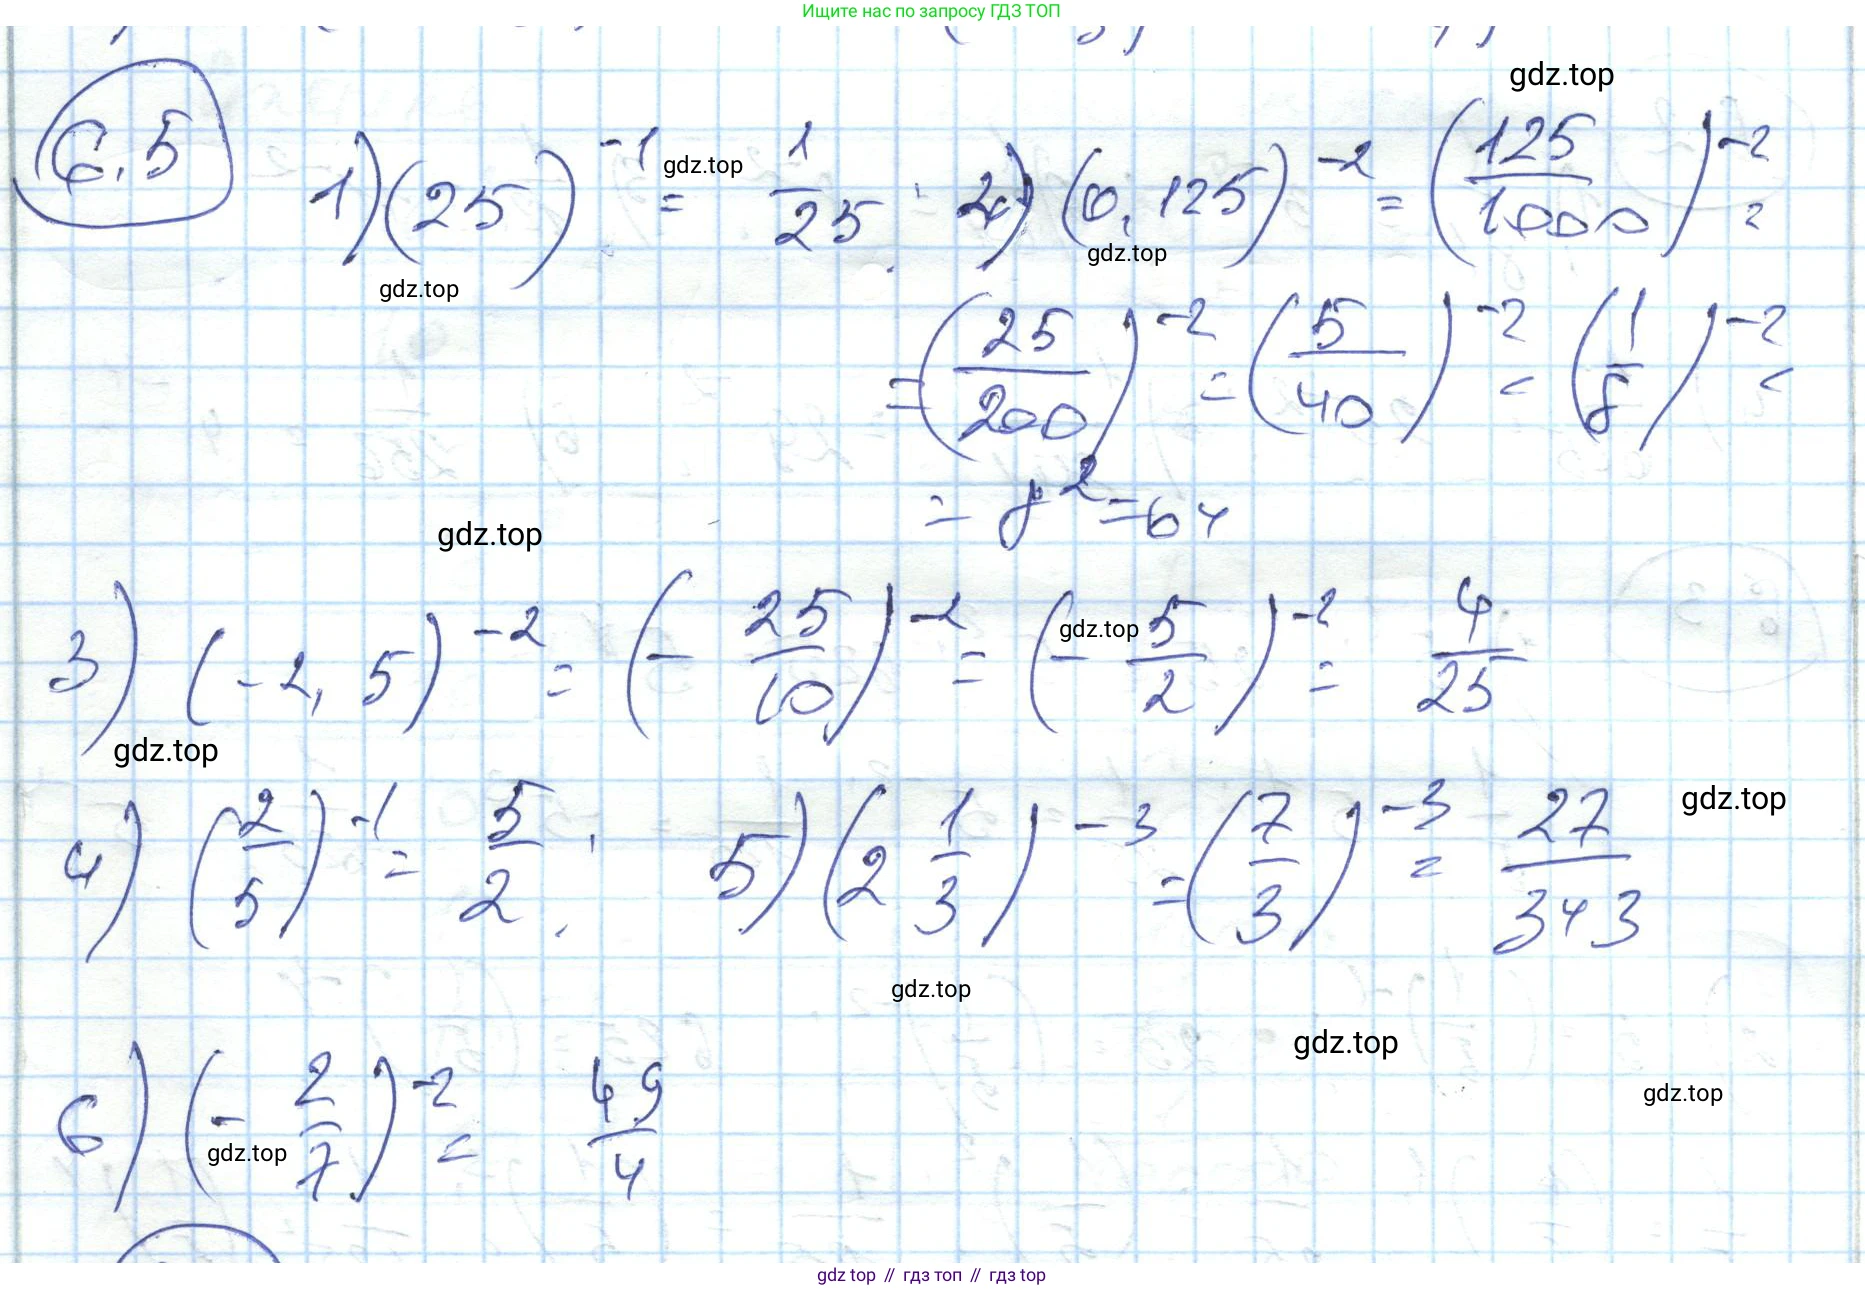 Ищите нас по запросу ГДЗ ТОП
gdz.top
6.5
1) (25)^-1 = 1/25; 2) (0,125)^-2 = (125/1000)^-2 =
gdz.top
gdz.top
gdz.top
= (25/200)^-2 = (5/40)^-2 = (1/8)^-2 =
= 8^2 = 64
gdz.top
3) (-2,5)^-2 = (-25/10)^-2 = (-5/2)^-2 = 4/25
gdz.top
gdz.top
4) (2/5)^-1 = 5/2; 5) (2 1/3)^-3 = (7/3)^-3 = 27/343
gdz.top
gdz.top
gdz.top
gdz.top
6) (-2/7)^-2 = 49/4
gdz.top
gdz top // гдз топ // гдз top